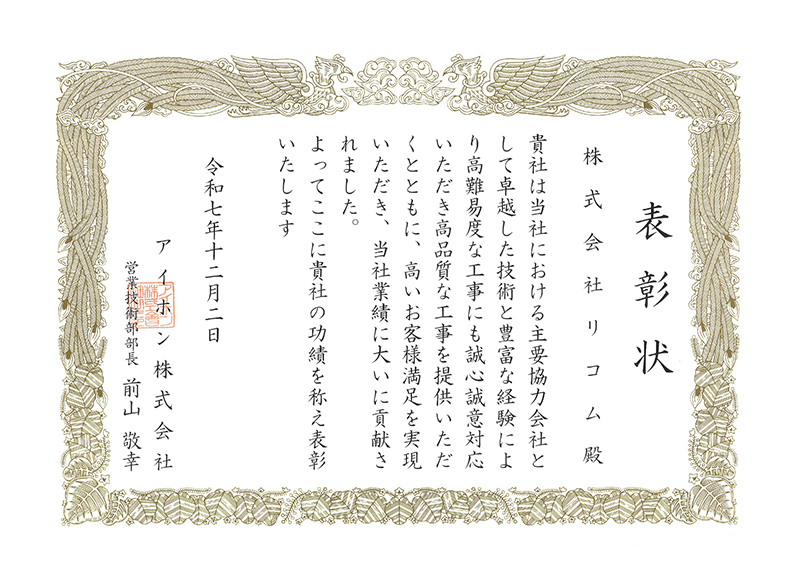 表彰状
株式会社リコム殿
貴社は当社における主要協力会社と
して卓越した技術と豊富な経験によ
り高難易度な工事にも誠心誠意対応
いただき高品質な工事を提供いただ
くとともに、高いお客様満足を実現
いただき、当社業績に大いに貢献さ
れました。
よってここに貴社の功績を称え表彰
いたします
令和七年十二月二日
アイホン株式会社
営業技術部部長 前山 敬幸